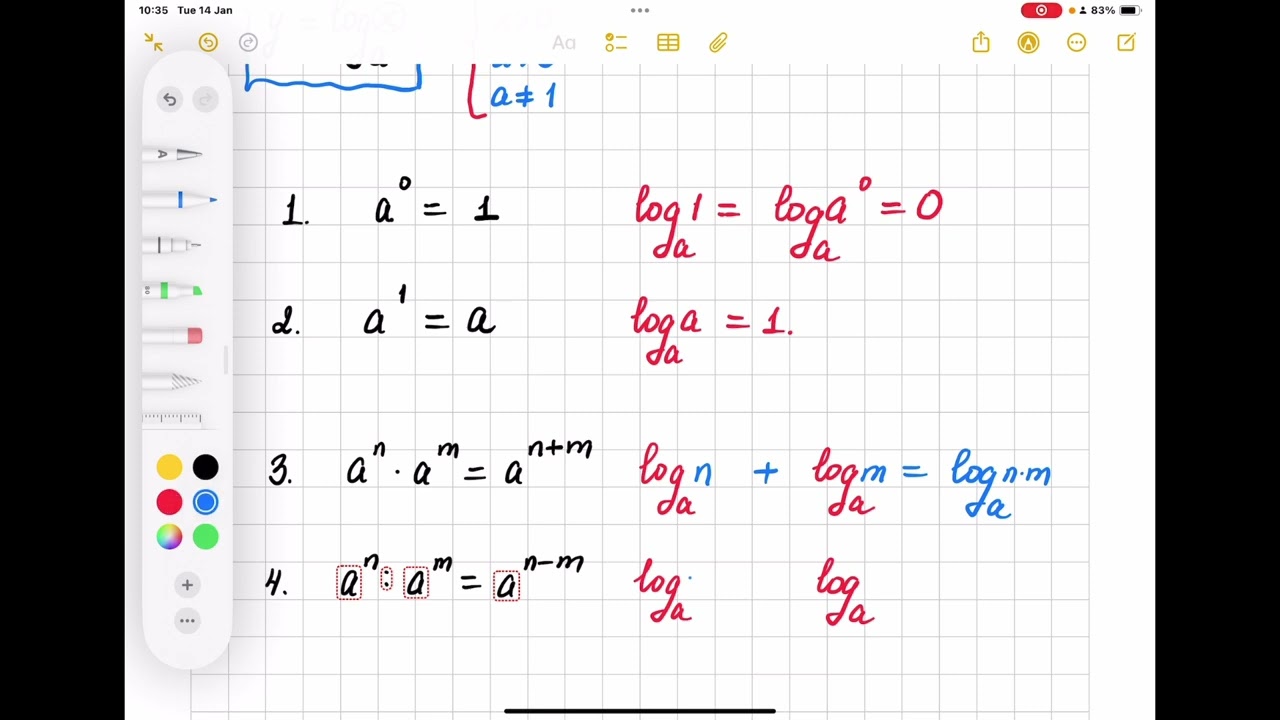 10:35 Tue 14 Jan 83%
Aa
a ≠ 1
1. a⁰ = 1 logₐ1 = logₐa⁰ = 0
2. a¹ = a logₐa = 1.
3. aⁿ · aᵐ = aⁿ⁺ᵐ logₐn + logₐm = logₐn·m
4. aⁿ : aᵐ = aⁿ⁻ᵐ logₐ logₐ